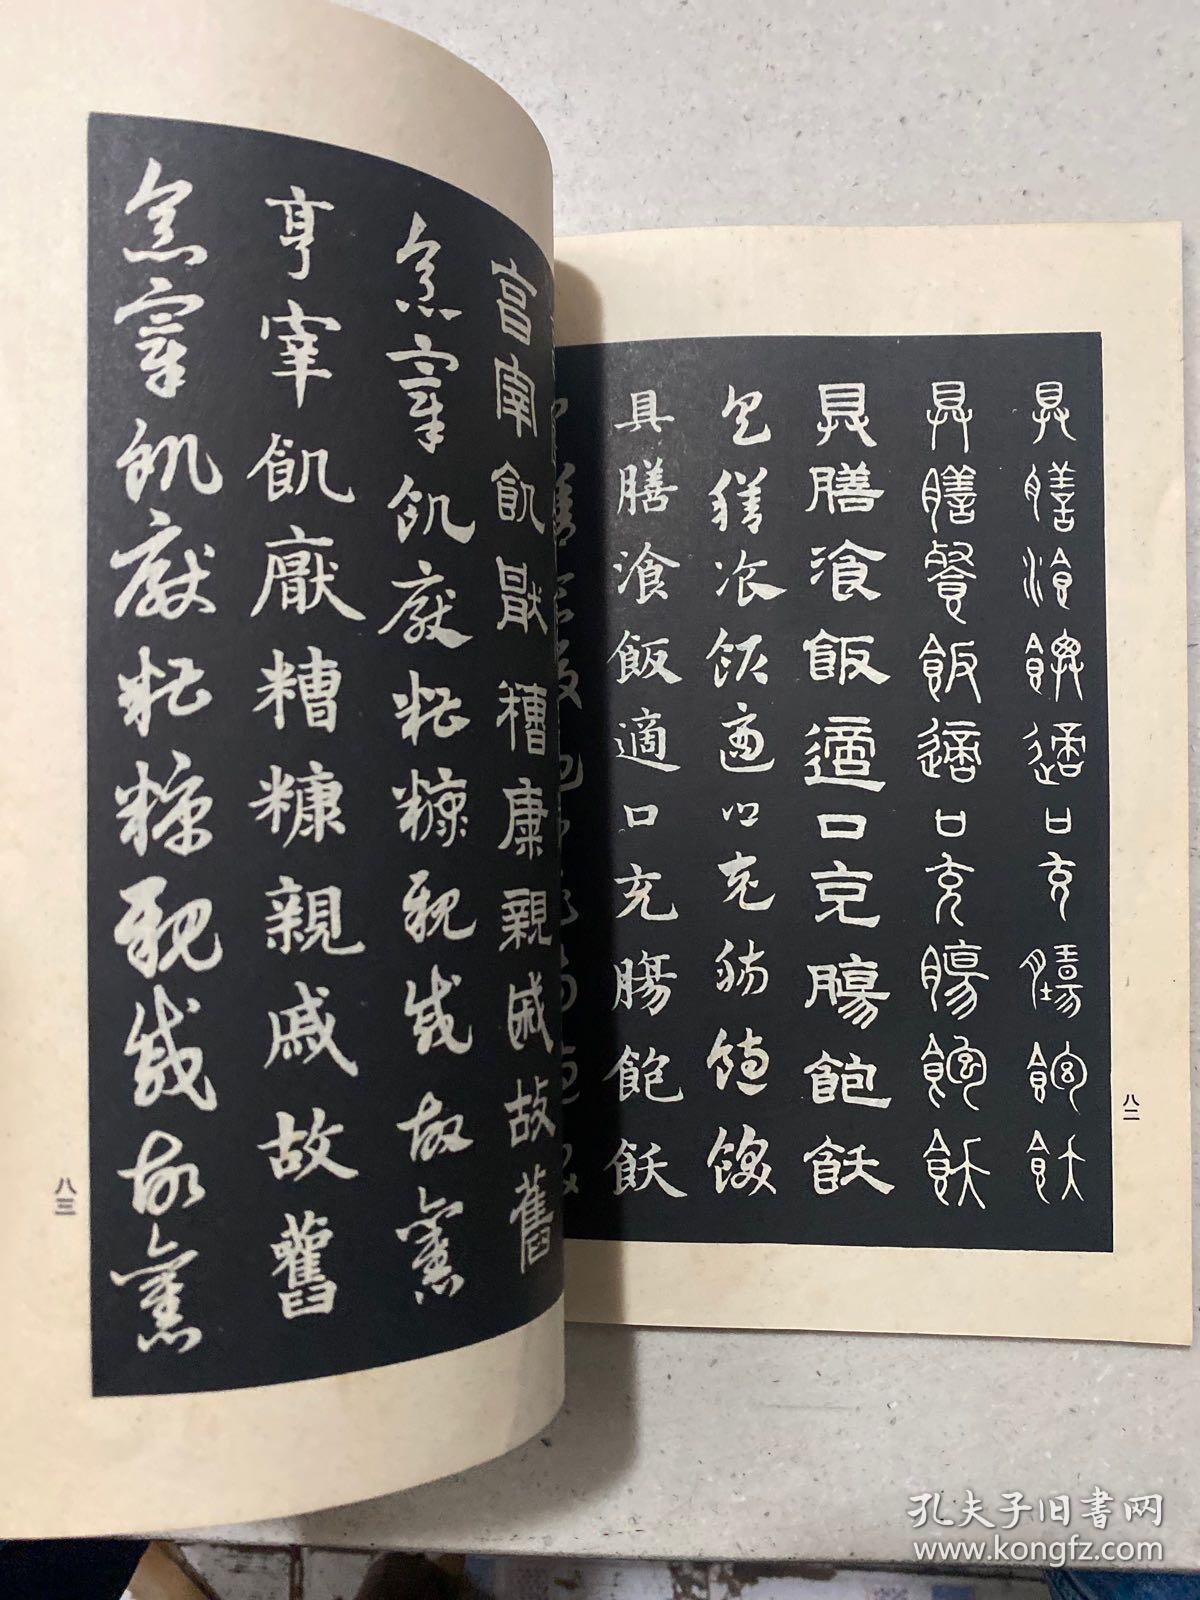 具膳飡飯適口充腸飽飫
具膳餐飯適口充腸飽飫
具膳飡飯適口充腸飽飫
具膳飡飯適口充腸飽飫
具膳飡飯適口充腸飽飫
八二
亯宰飢猒糟康親戚故舊
烹宰飢厭糟糠親戚故舊
亨宰飢厭糟糠親戚故舊
烹宰飢厭糟糠親戚故舊
八三
孔夫子旧书网
www.kongfz.com